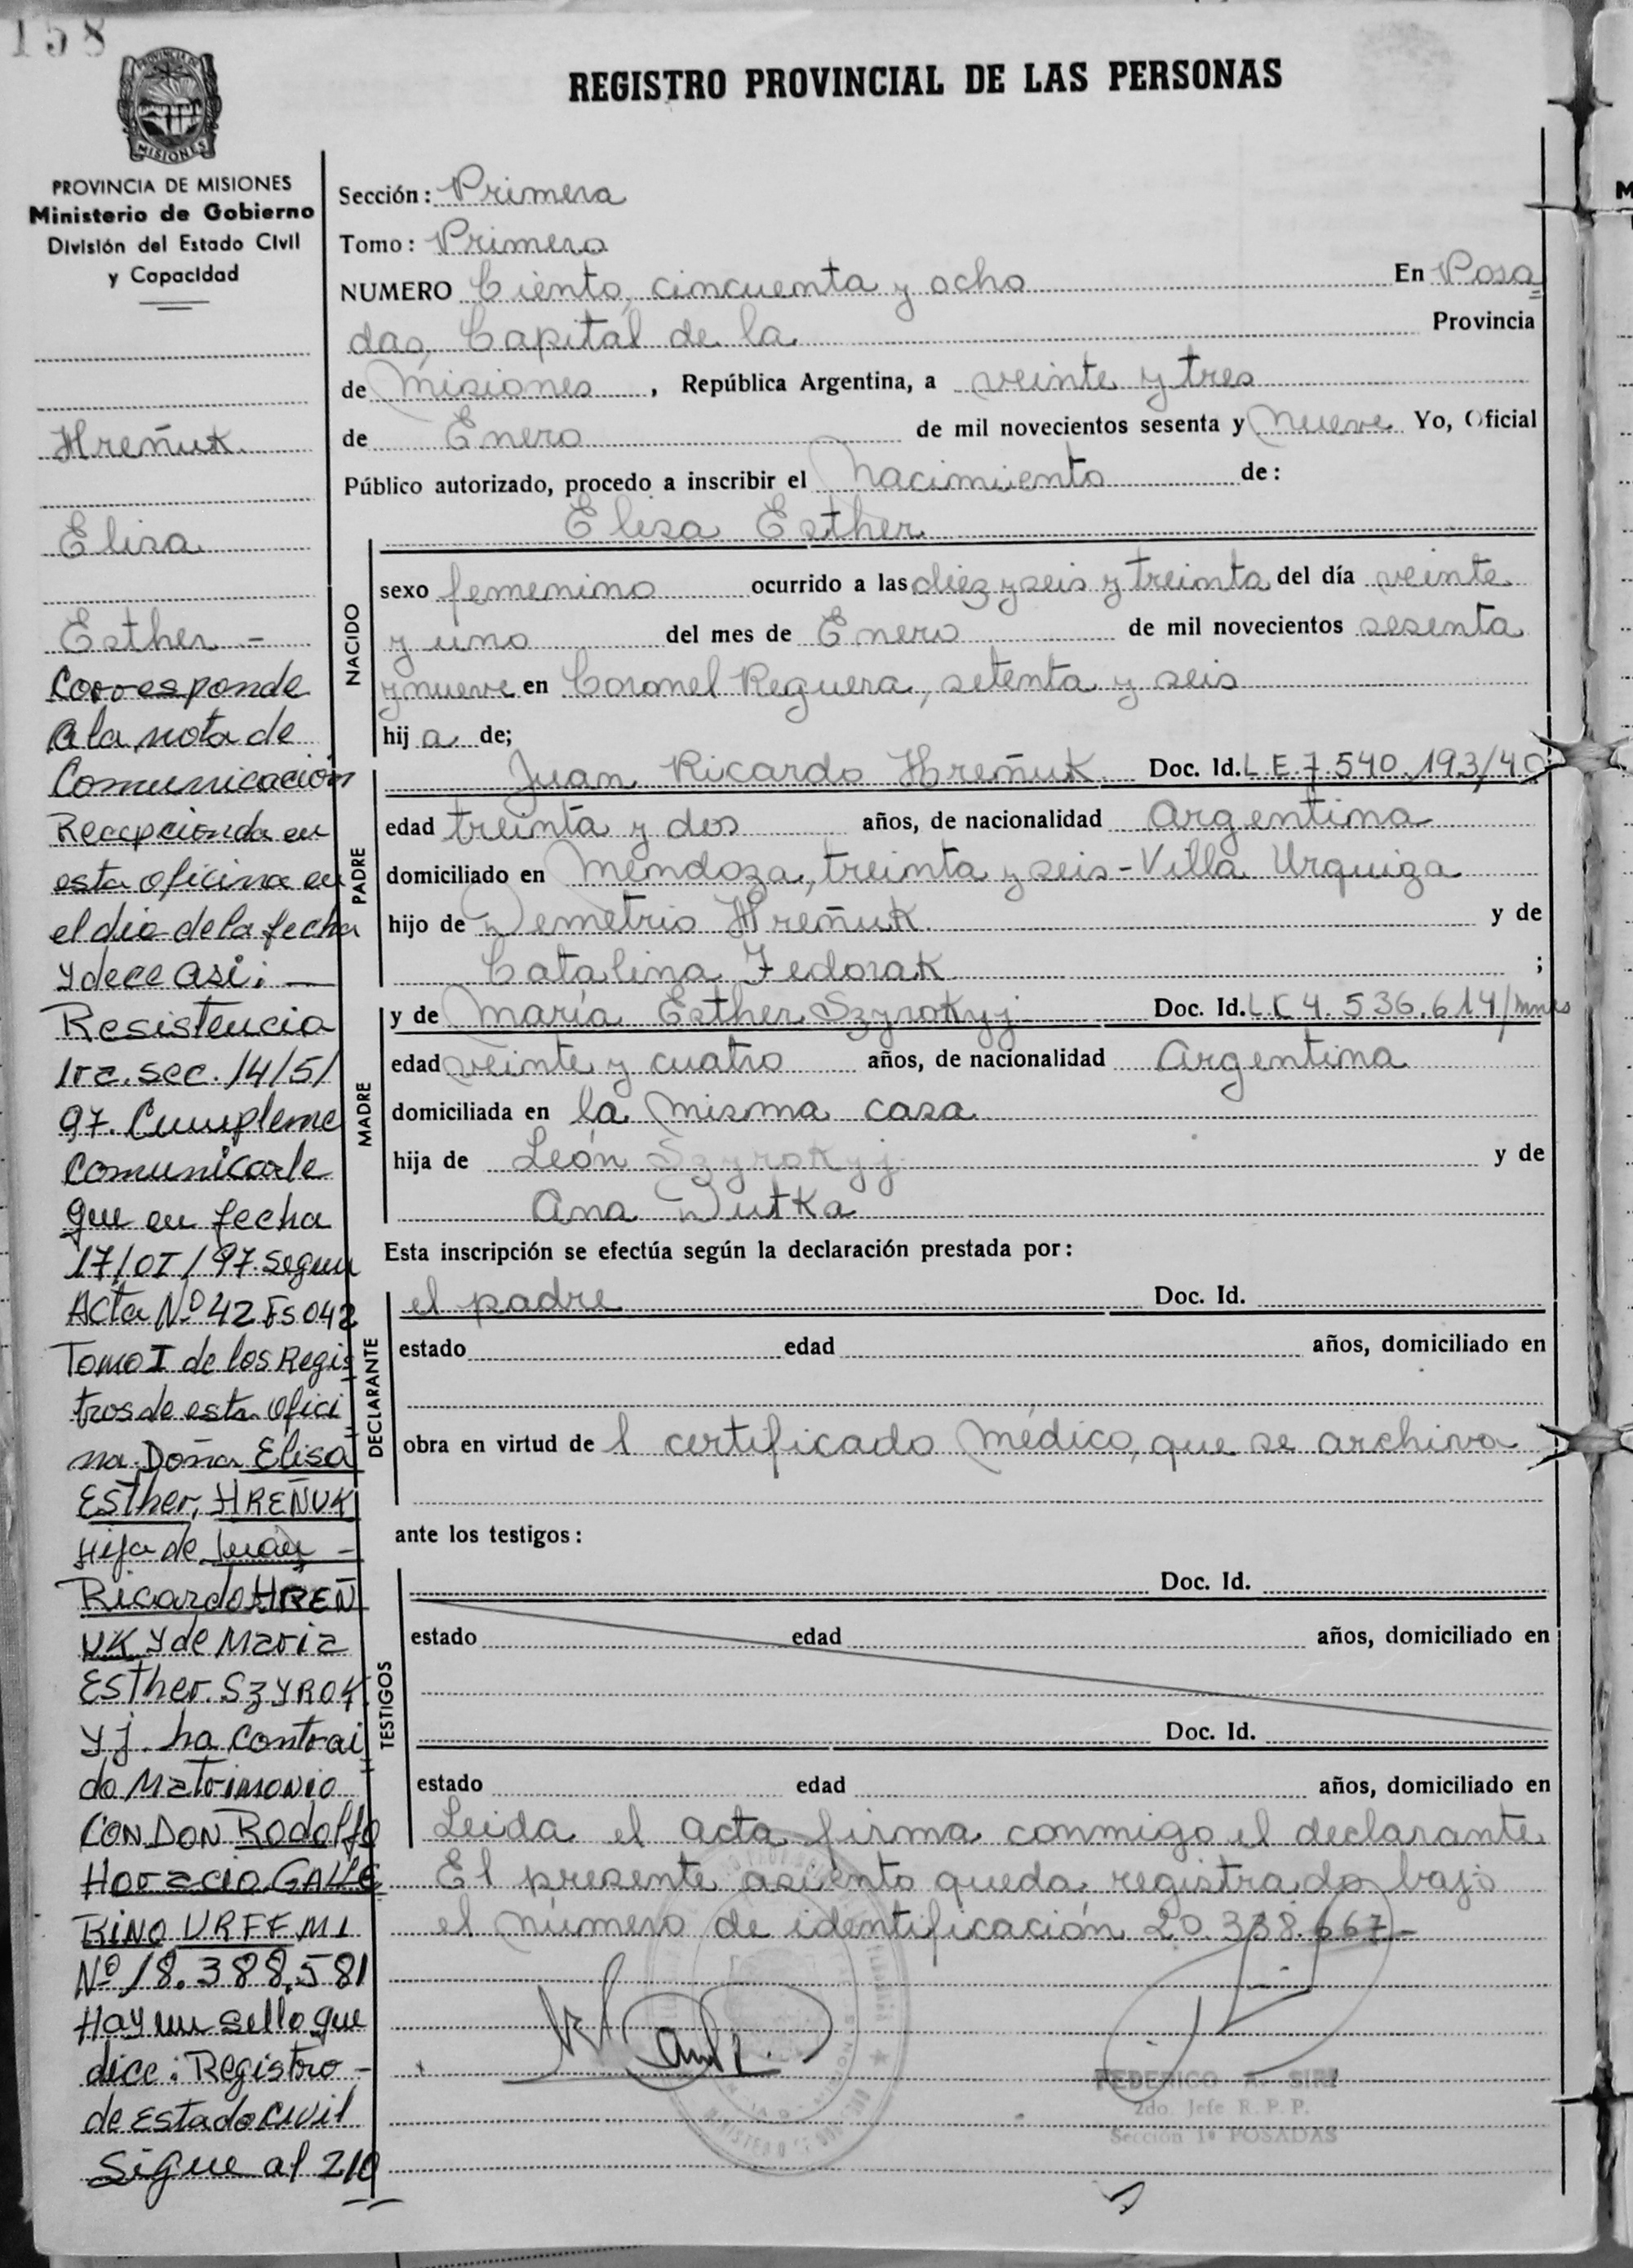 158
MISIONES
PROVINCIA DE MISIONES
Ministerio de Gobierno
División del Estado Civil
y Capacidad
Hreñuk
Elisa
Esther =
Corresponde
a la nota de
Comunicación
Recepcionda en
esta oficina en
el dia de la fecha
y dece asi: —
Resistencia
1ra. sec. 14/5/
97. Cumpleme
Comunicarle
que en fecha
17/01/97. Segun
Acta Nº 42 Fs 042
Tomo I de los Regis
tros de esta ofici
na. Doña Elisa
Esther, HREÑUK
Hija de Juan -
Ricardo HREÑ
UK y de Maria
Esther. SZYROK
yj. ha contrai
do Matrimonio
CON DON Rodolfo
Horacio GALLE
RINO URFE MI
Nº 18.388.581
Hay un sello que
dice: Registro -
de Estado Civil
Sigue al 210
REGISTRO PROVINCIAL DE LAS PERSONAS
Sección: Primera
Tomo: Primero
NUMERO Ciento, cincuenta y ocho En Posa
das, Capital de la Provincia
de Misiones, República Argentina, a veinte y tres
de Enero de mil novecientos sesenta y nueve Yo, Oficial
Público autorizado, procedo a inscribir el nacimiento de:
Elisa Esther
NACIDO
sexo femenino ocurrido a las diez y seis y treinta del día veinte
y uno del mes de Enero de mil novecientos sesenta
y nueve en Coronel Reguera, setenta y seis
hija de;
PADRE
Juan Ricardo Hreñuk Doc. Id. L E. 7.540.193/40
edad treinta y dos años, de nacionalidad Argentina
domiciliado en Mendoza, treinta y seis - Villa Urquiza
hijo de Demetrio Hreñuk y de
Catalina Fedorak ;
MADRE
y de María Esther Szyrokyj Doc. Id. L C 4.536.614/mnes
edad veinte y cuatro años, de nacionalidad Argentina
domiciliada en la misma casa
hija de León Szyrokyj y de
Ana Dutka
Esta inscripción se efectúa según la declaración prestada por:
DECLARANTE
el padre Doc. Id.
estado edad años, domiciliado en
obra en virtud de l certificado médico, que se archiva
ante los testigos:
TESTIGOS
Doc. Id.
estado edad años, domiciliado en
Doc. Id.
estado edad años, domiciliado en
Leida el acta firma conmigo el declarante
El presente asiento queda registrado bajo
el número de identificación 20.338.667-
FEDERICO A. SIRI
2do. Jefe R. P. P.
Sección 1ª POSADAS